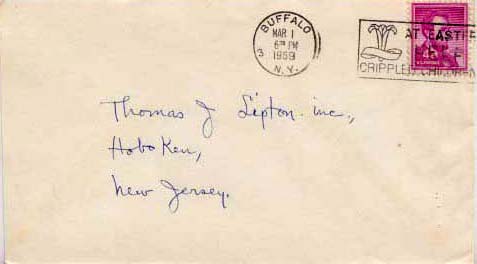 BUFFALO
MAR 1
6 PM
1959
3
N.Y.
AT EASTE
CRIPPLED CHILDREN
Thomas J Lipton inc.,
Hoboken,
New Jersey.